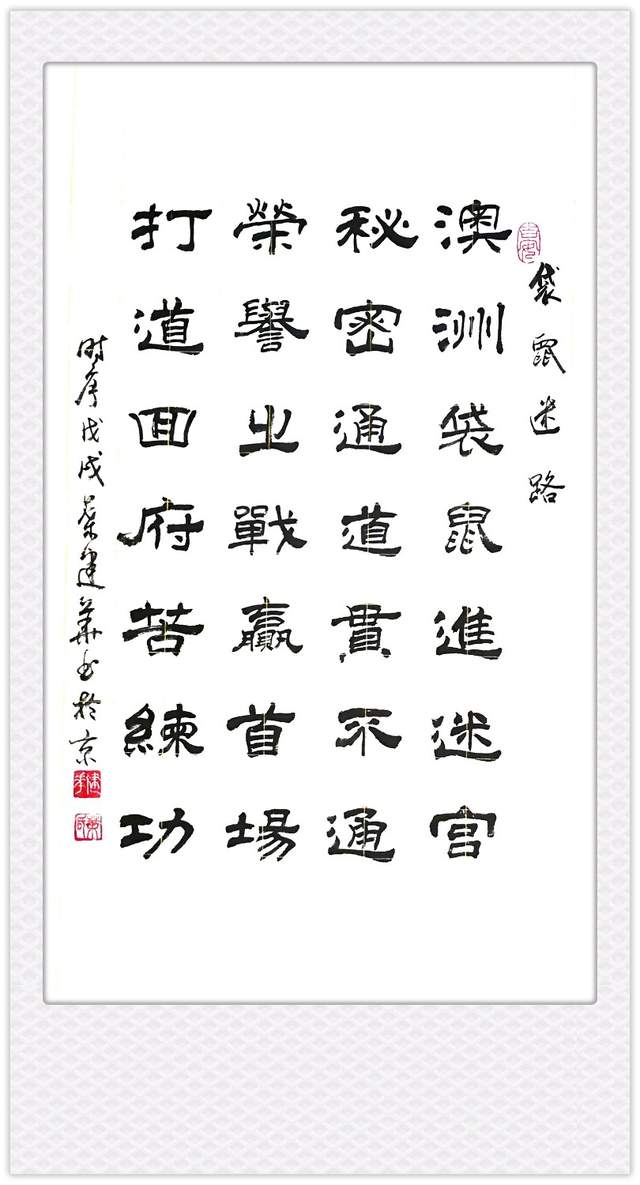 袋鼠迷路
澳洲袋鼠進迷宮
秘密通道貫不通
榮譽之戰贏首場
打道回府苦練功
時序戊戌蔡建華書於京